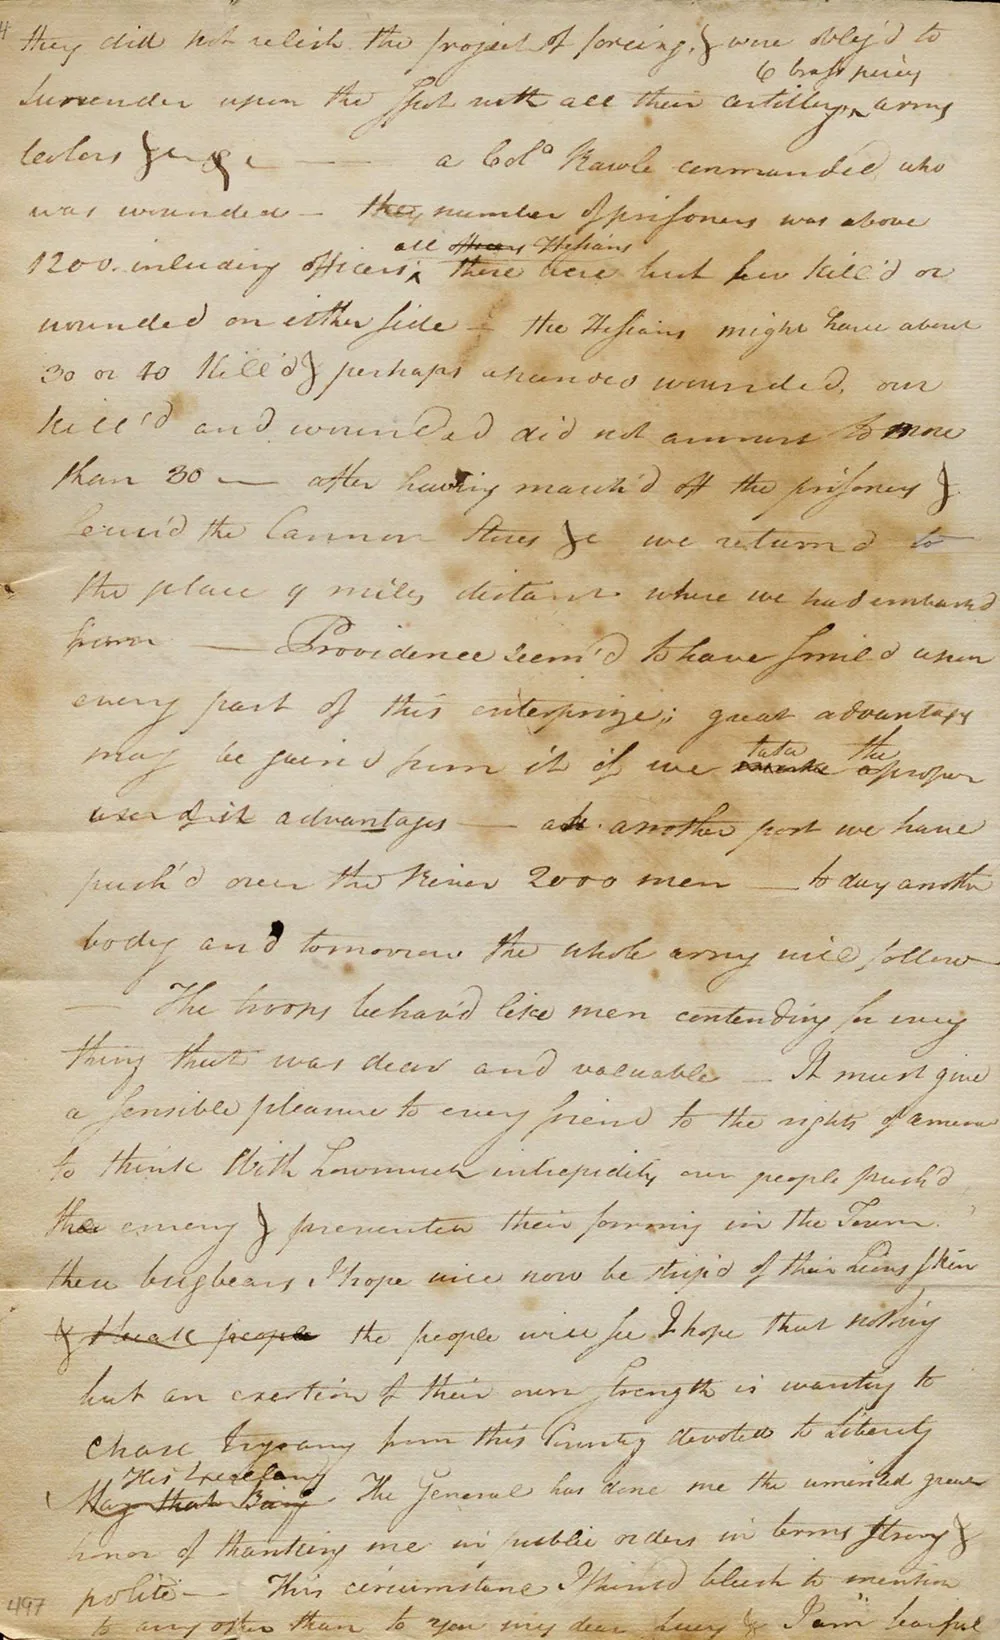 4
they did not relish the project of forcing, & were oblej'd to
6 brass pieces
Surrender upon the Spot with all their artillery, ^ arms
Colors &c &c — a Colo Rawle commanded who
was wounded — they number of prisoners was above
all officers Hessians
1200. including officers, ^ there were but few kill'd or
wounded on either side — the Hessians might have about
30 or 40 kill'd & perhaps wounded, our
kill'd and wounded did not amount to more
than 30 — after having march'd off the prisoners &
secur'd the Cannon Stores &c we return'd to
the place 9 miles distant where we had embark'd
from — Providence seem'd to have smil'd upon
every part of this enterprize; great advantages
may be gain'd from it if we
take the
make proper
use of it advantages — at another post we have
push'd over the River 2000 men — to day another
body and tomorrow the whole army will follow
— The troops behav'd like men contending for every
thing that was dear and valuable — It must give
a sensible pleasure to every friend to the rights of america
to think With howmuch intrepidity our people push'd
the enemy & prevented their forming in the Town.
these bugbears I hope will now be strip'd of their Lions skin
& people the people will see I hope that nothing
but an exertion of their own Strength is wanting to
chase tyranny from this Country devoted to Liberty
His Excellency
The General has done me the unmerited great
honor of thanking me in public orders in terms strong &
polite — This circumstance I should blush to mention
497
to any other than to you my dear Lucy & I am fearful